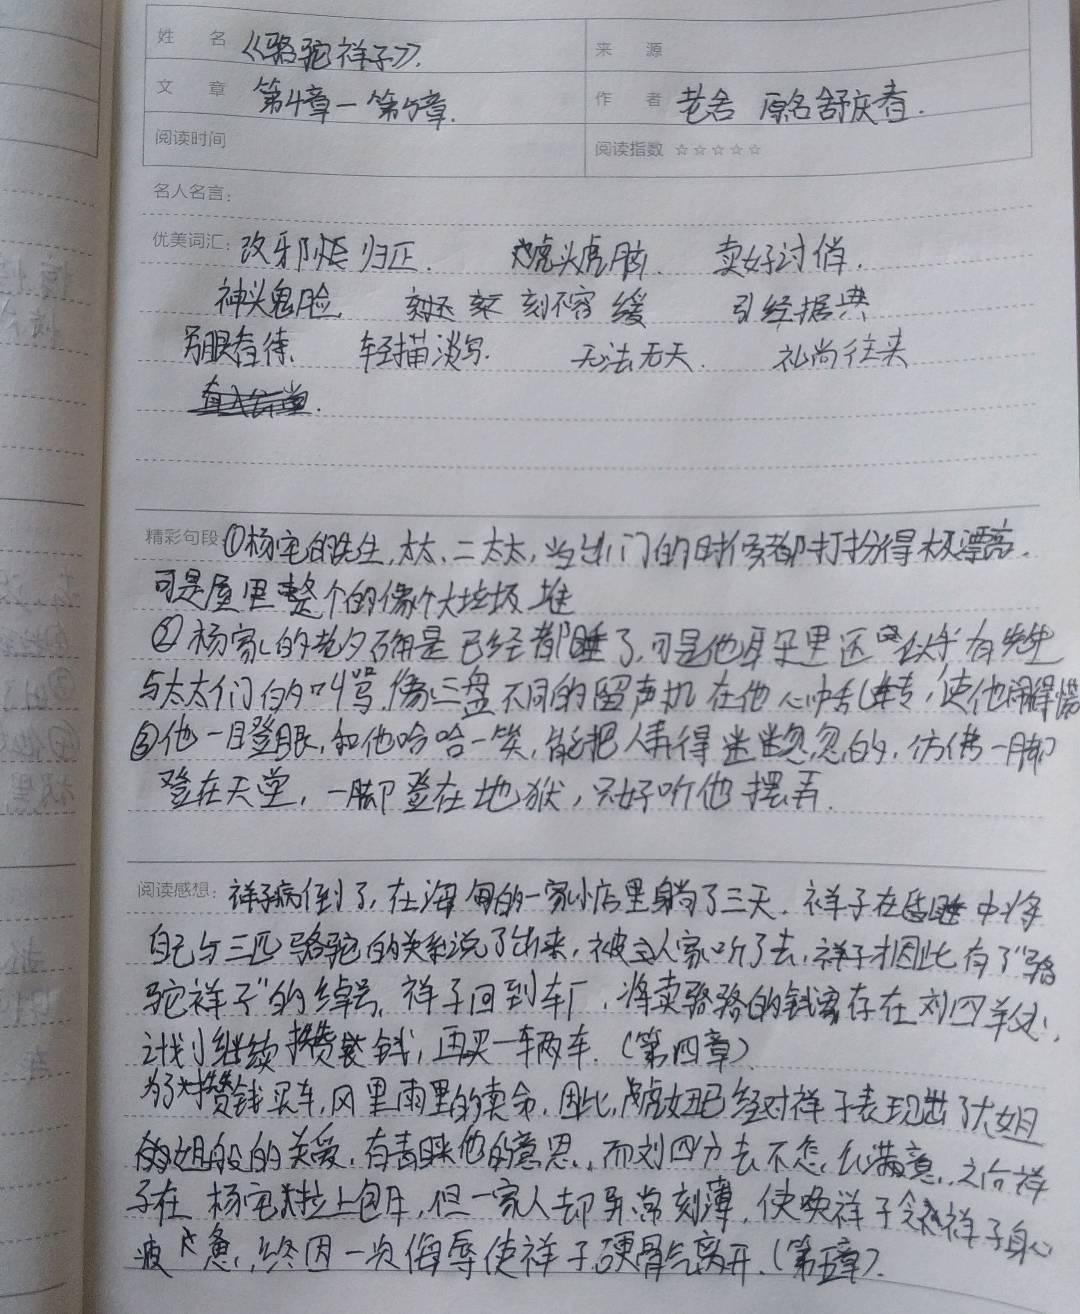 姓 名 《骆驼祥子》. 来 源
文 章 第4章一第5章. 作 者 老舍 原名舒庆春.
阅读时间 阅读指数 ☆☆☆☆☆
名人名言:
优美词汇: 改邪归正. 虎头虎脑. 卖好讨俏.
神头鬼脸 刻不容缓 引经据典
另眼看待. 轻描淡写. 无法无天. 礼尚往来
精彩句段 ①杨宅的先生,太太,二太太,当出门的时候都打扮得极漂亮.
可是屋里整个的像个大垃圾堆
②杨家的老少确是已经都睡了,可是他耳朵里还似乎有先生
与太太们的叫骂,像三盘不同的留声机在他心中乱转,使他闹得慌
③他一瞪眼,和他哈哈一笑,能把人弄得迷迷忽忽的,仿佛一脚
登在天堂,一脚登在地狱,只好听他摆弄.
阅读感想: 祥子病倒了,在海甸的一家小店里躺了三天.祥子在昏睡中将
自己与三匹骆驼的关系说了出来,被主人家听了去,祥子才因此有了"骆
驼祥子"的绰号.祥子回到车厂,将卖骆骆的钱寄存在刘四爷处,
计划继续攒钱,再买一辆车.(第四章)
为了攒钱买车,风里雨里的卖命,因此,虎妞已经对祥子表现出了大姐
姐般的关爱,有青睐他的意思.,而刘四方去不怎么满意.,之后祥
子在杨宅拉上包车,但一家人却异常刻薄,使唤祥子令祥子身心
疲惫,终因一次侮辱使祥子硬骨气离开.(第五章).